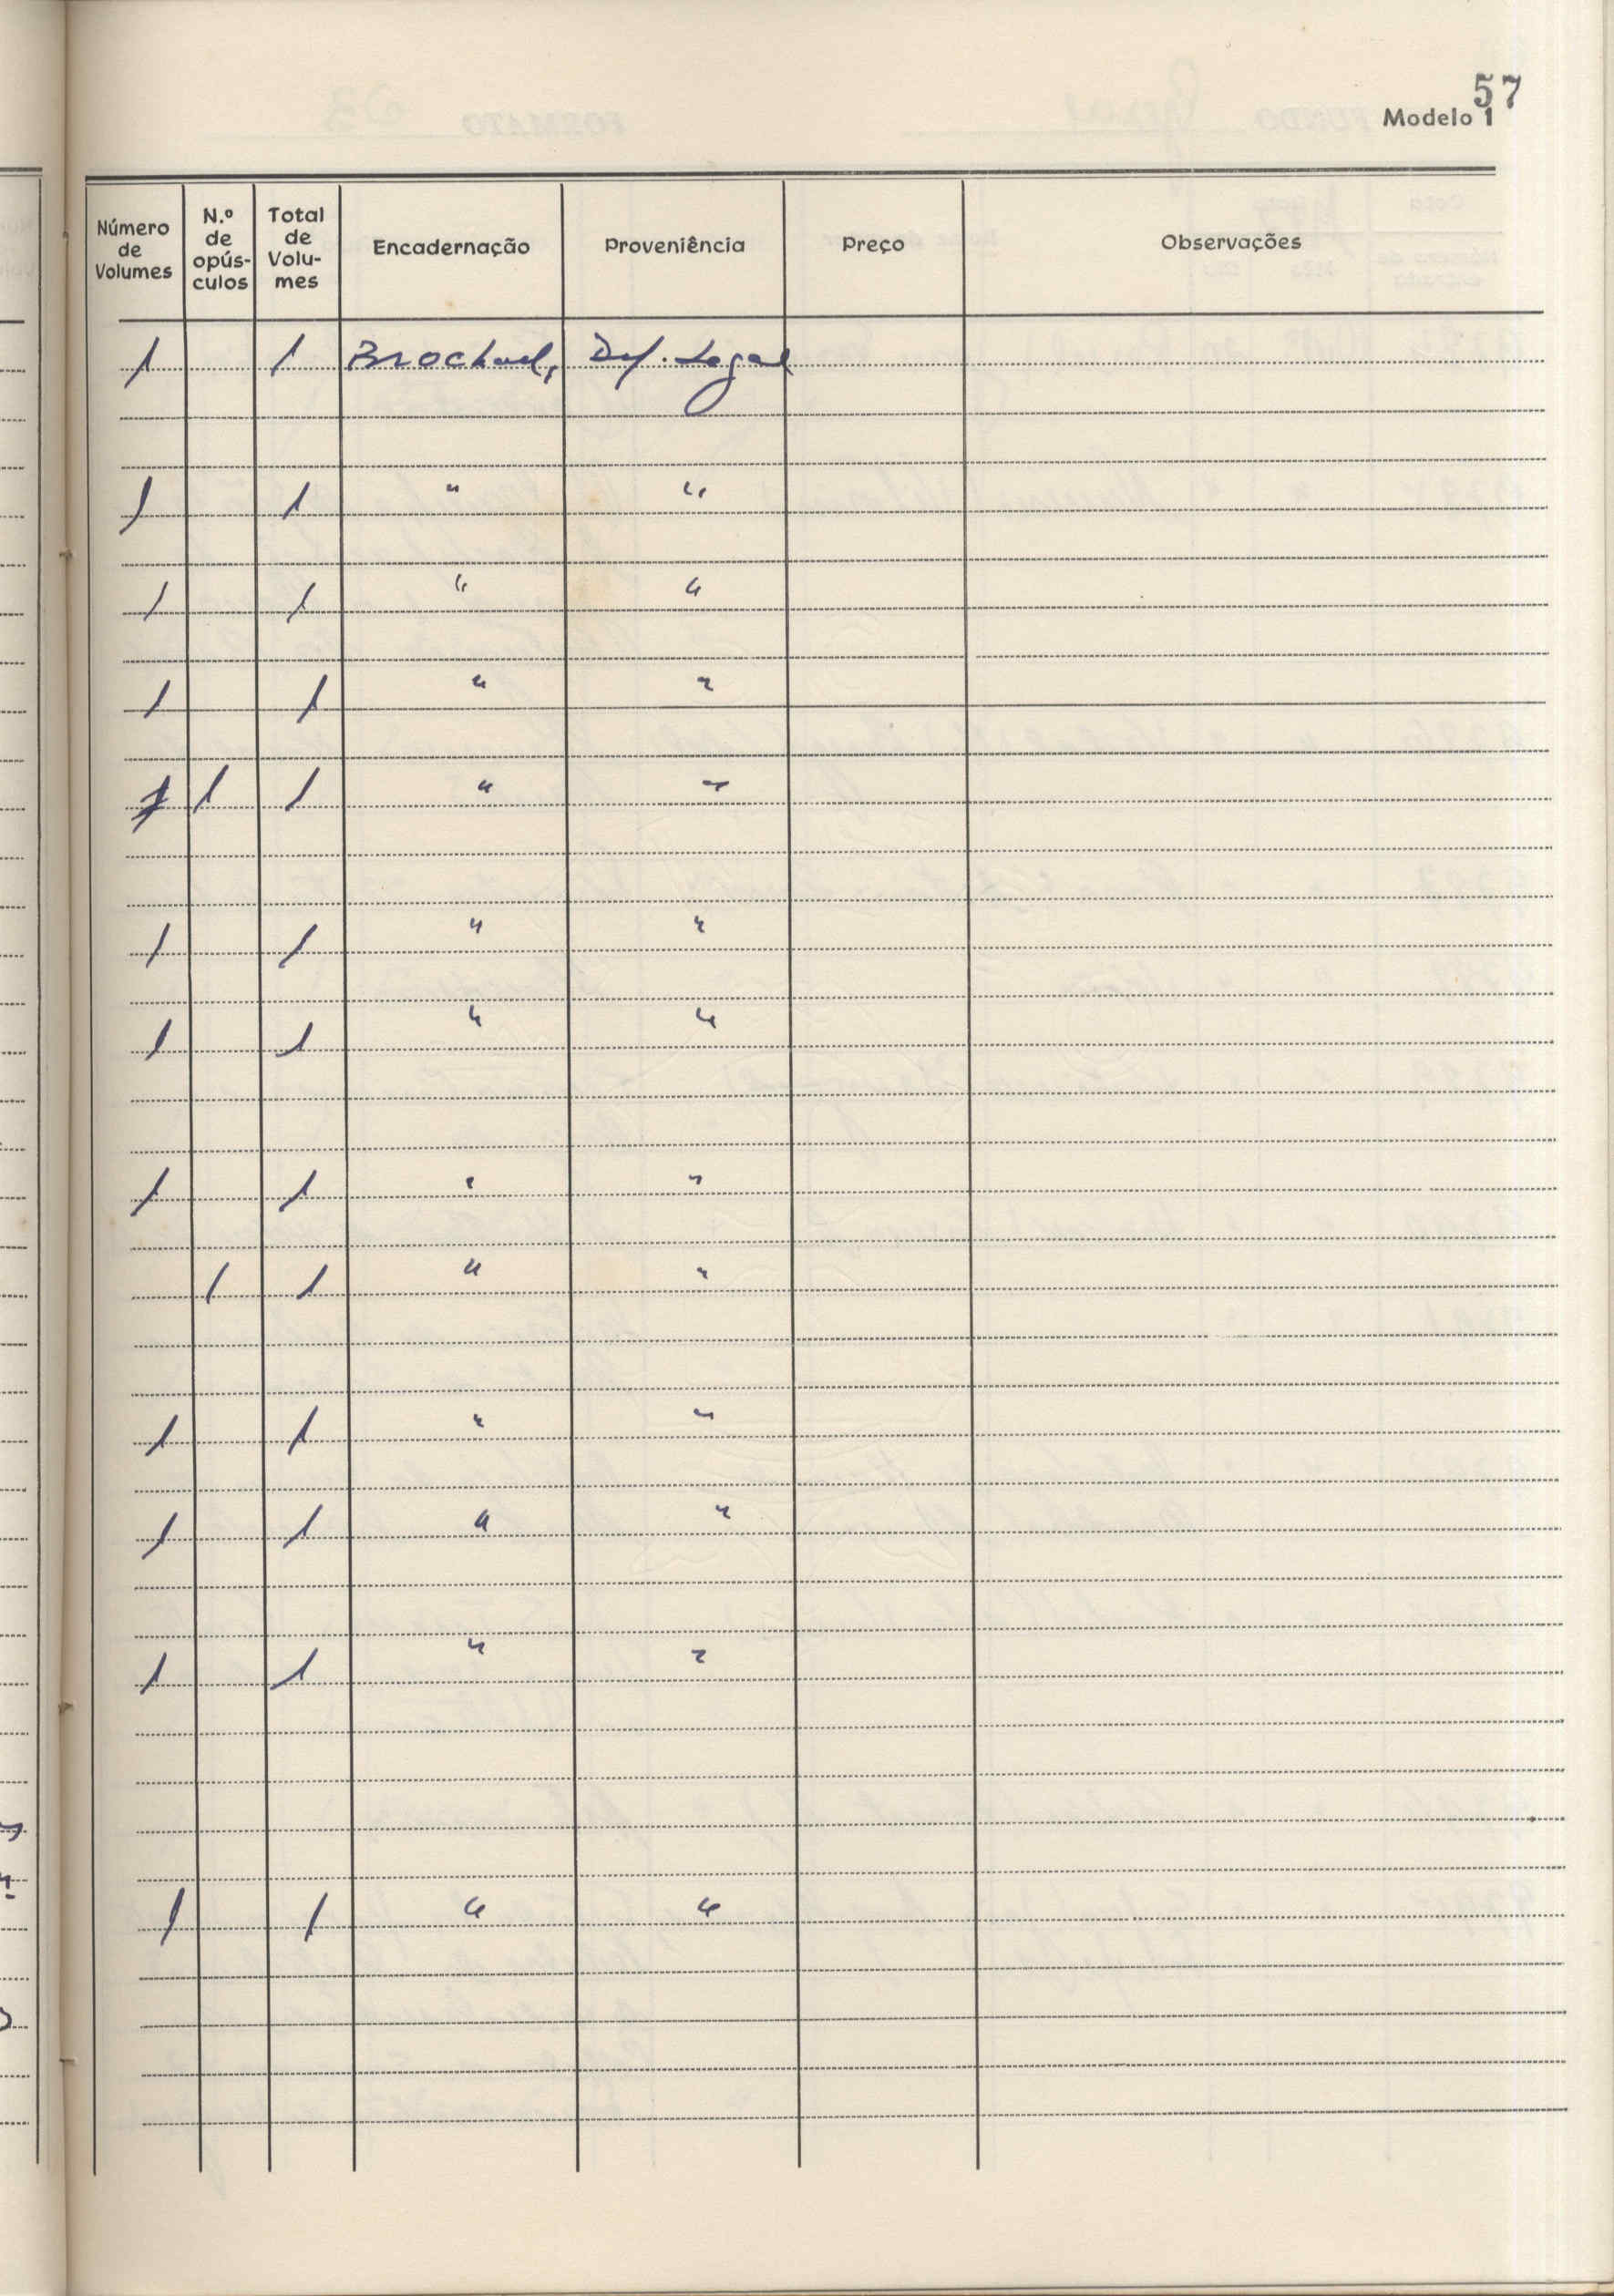 57
Modelo 1
Número de Volumes | N.º de opús-culos | Total de Volu-mes | Encadernação | Proveniência | Preço | Observações
1 | | 1 | Brochad, | Dep. Legal
1 | | 1 | " | "
1 | | 1 | " | "
1 | | 1 | " | "
1 | 1 | 1 | " | "
1 | | 1 | " | "
1 | | 1 | " | "
1 | | 1 | " | "
| 1 | 1 | " | "
1 | | 1 | " | "
1 | | 1 | " | "
1 | | 1 | " | "
1 | | 1 | " | "